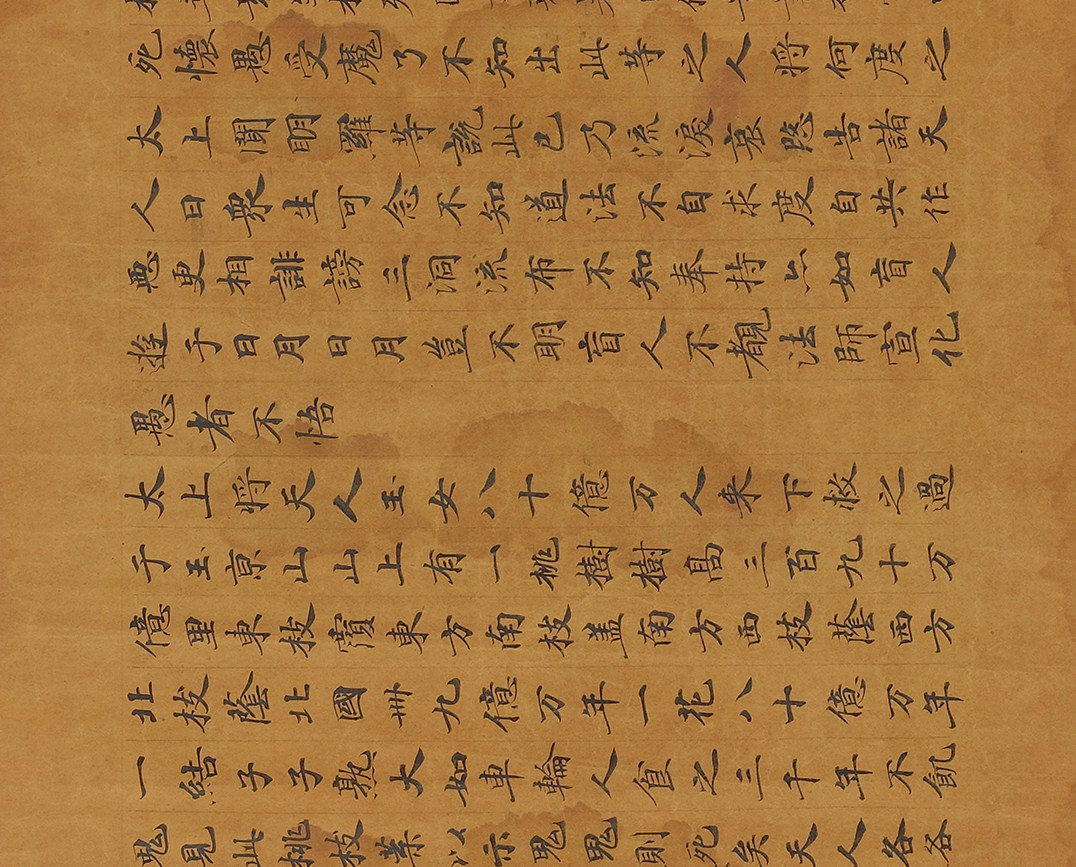 死懷愚受魔了不知出此等之人將何度之
太上聞明羅等說此已乃流淚哀愍告諸天
人曰衆生可念不知道法不自求度自共作
惡更相誹謗三洞流布不知奉持亦如盲人
遊于日月日月豈不明盲人不覩法師宣化
愚者不悟
太上將天人玉女八十億万人来下救之過
于玉京山山上有一桃樹樹髙三百九十万
億里東枝覆東方南枝盖南方西枝蔭西方
北枝蔭北國卌九億万年一花八十億万年
一結子子熟大如車輪人食之三千年不飢
鬼見此桃枝葉以示鬼鬼則死矣天人各各